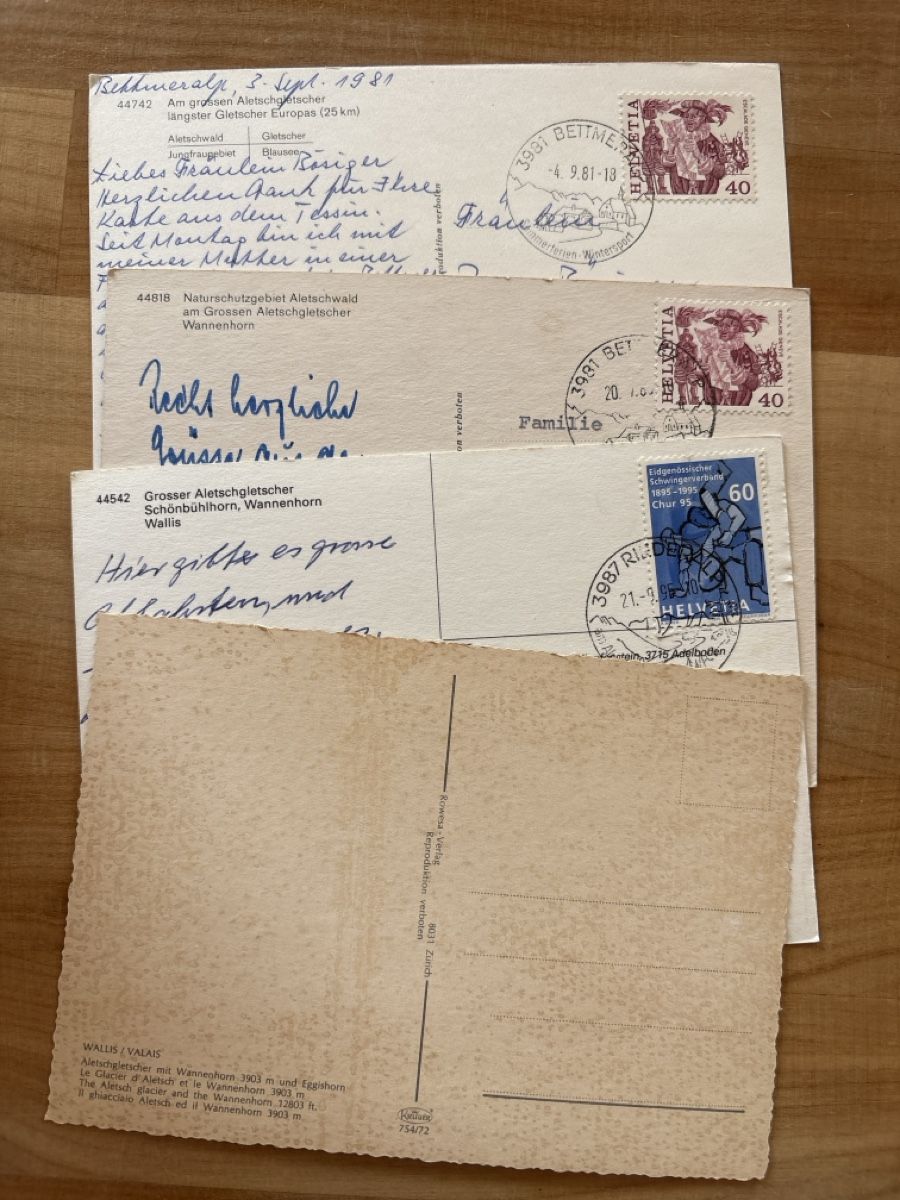 Bettmeralp, 3. Sept. 1981
44742 Am grossen Aletschgletscher
längster Gletscher Europas (25 km)
Aletschwald Gletscher
Jungfraugebiet Blausee
Liebes Fräulein Bösiger
Herzlichen Dank für Ihre
Karte aus dem Tessin.
Seit Montag bin ich mit
meiner Mutter in einer
Fräulein
HELVETIA
40
3981 BETTMERALP
-4. 9.81-18
44818 Naturschutzgebiet Aletschwald
am Grossen Aletschgletscher
Wannenhorn
Recht herzliche
Grüsse aus
Familie
HELVETIA
40
3981 BET
44542 Grosser Aletschgletscher
Schönbühlhorn, Wannenhorn
Wallis
Hier gibt es grosse
und
Eidgenössischer
Schwingerverband
1895-1995
Chur 95
60
HELVETIA
3987 RIEDERALP
3715 Adelboden
Rowesa-Verlag 8031 Zürich
Reproduktion verboten
WALLIS / VALAIS
Aletschgletscher mit Wannenhorn 3903 m und Eggishorn
Le Glacier d'Aletsch et le Wannenhorn 3903 m
The Aletsch glacier and the Wannenhorn 12803 ft.
Il ghiacciaio Aletsch ed il Wannenhorn 3903 m
KRÜGER
754/72